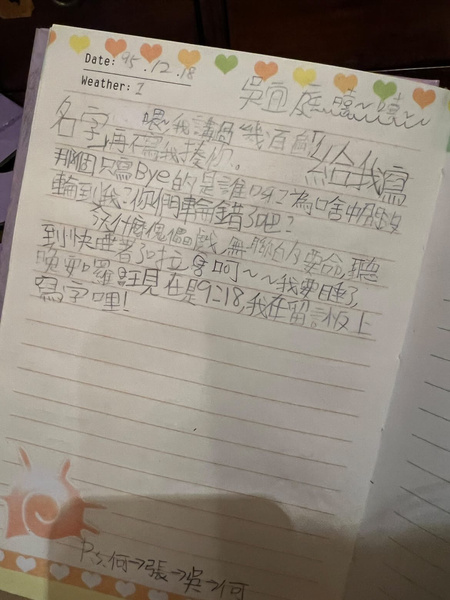 Date: 95.12.18
Weather: I
吳宜庭嘻~嘻~
喂~我講過幾百遍了給我寫
名字,再不寫我揍你。
那個只寫Bye的是誰呀?為啥中間沒
輪到我?你們輪錯了吧?
今什麼傀儡戲,無聊的要命,聽
到快睡著了啦!呵呵~~我要睡了
晚安囉!現在是9:18,我在留言板上
寫字哩!
P.S.何→張→吳→何